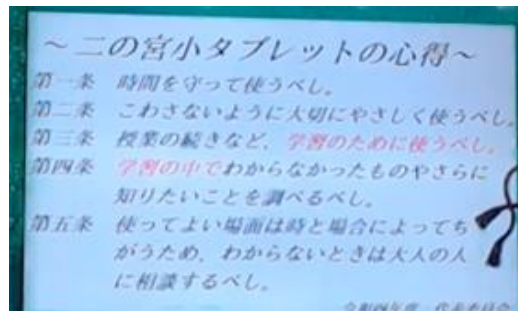 ～二の宮小タブレットの心得～
第一条 時間を守って使うべし。
第二条 こわさないように大切にやさしく使うべし。
第三条 授業の続きなど、学習のために使うべし。
第四条 学習の中でわからなかったものやさらに
知りたいことを調べるべし。
第五条 使ってよい場面は時と場合によってち
がうため、わからないときは大人の人
に相談するべし。
令和四年度 代表委員会